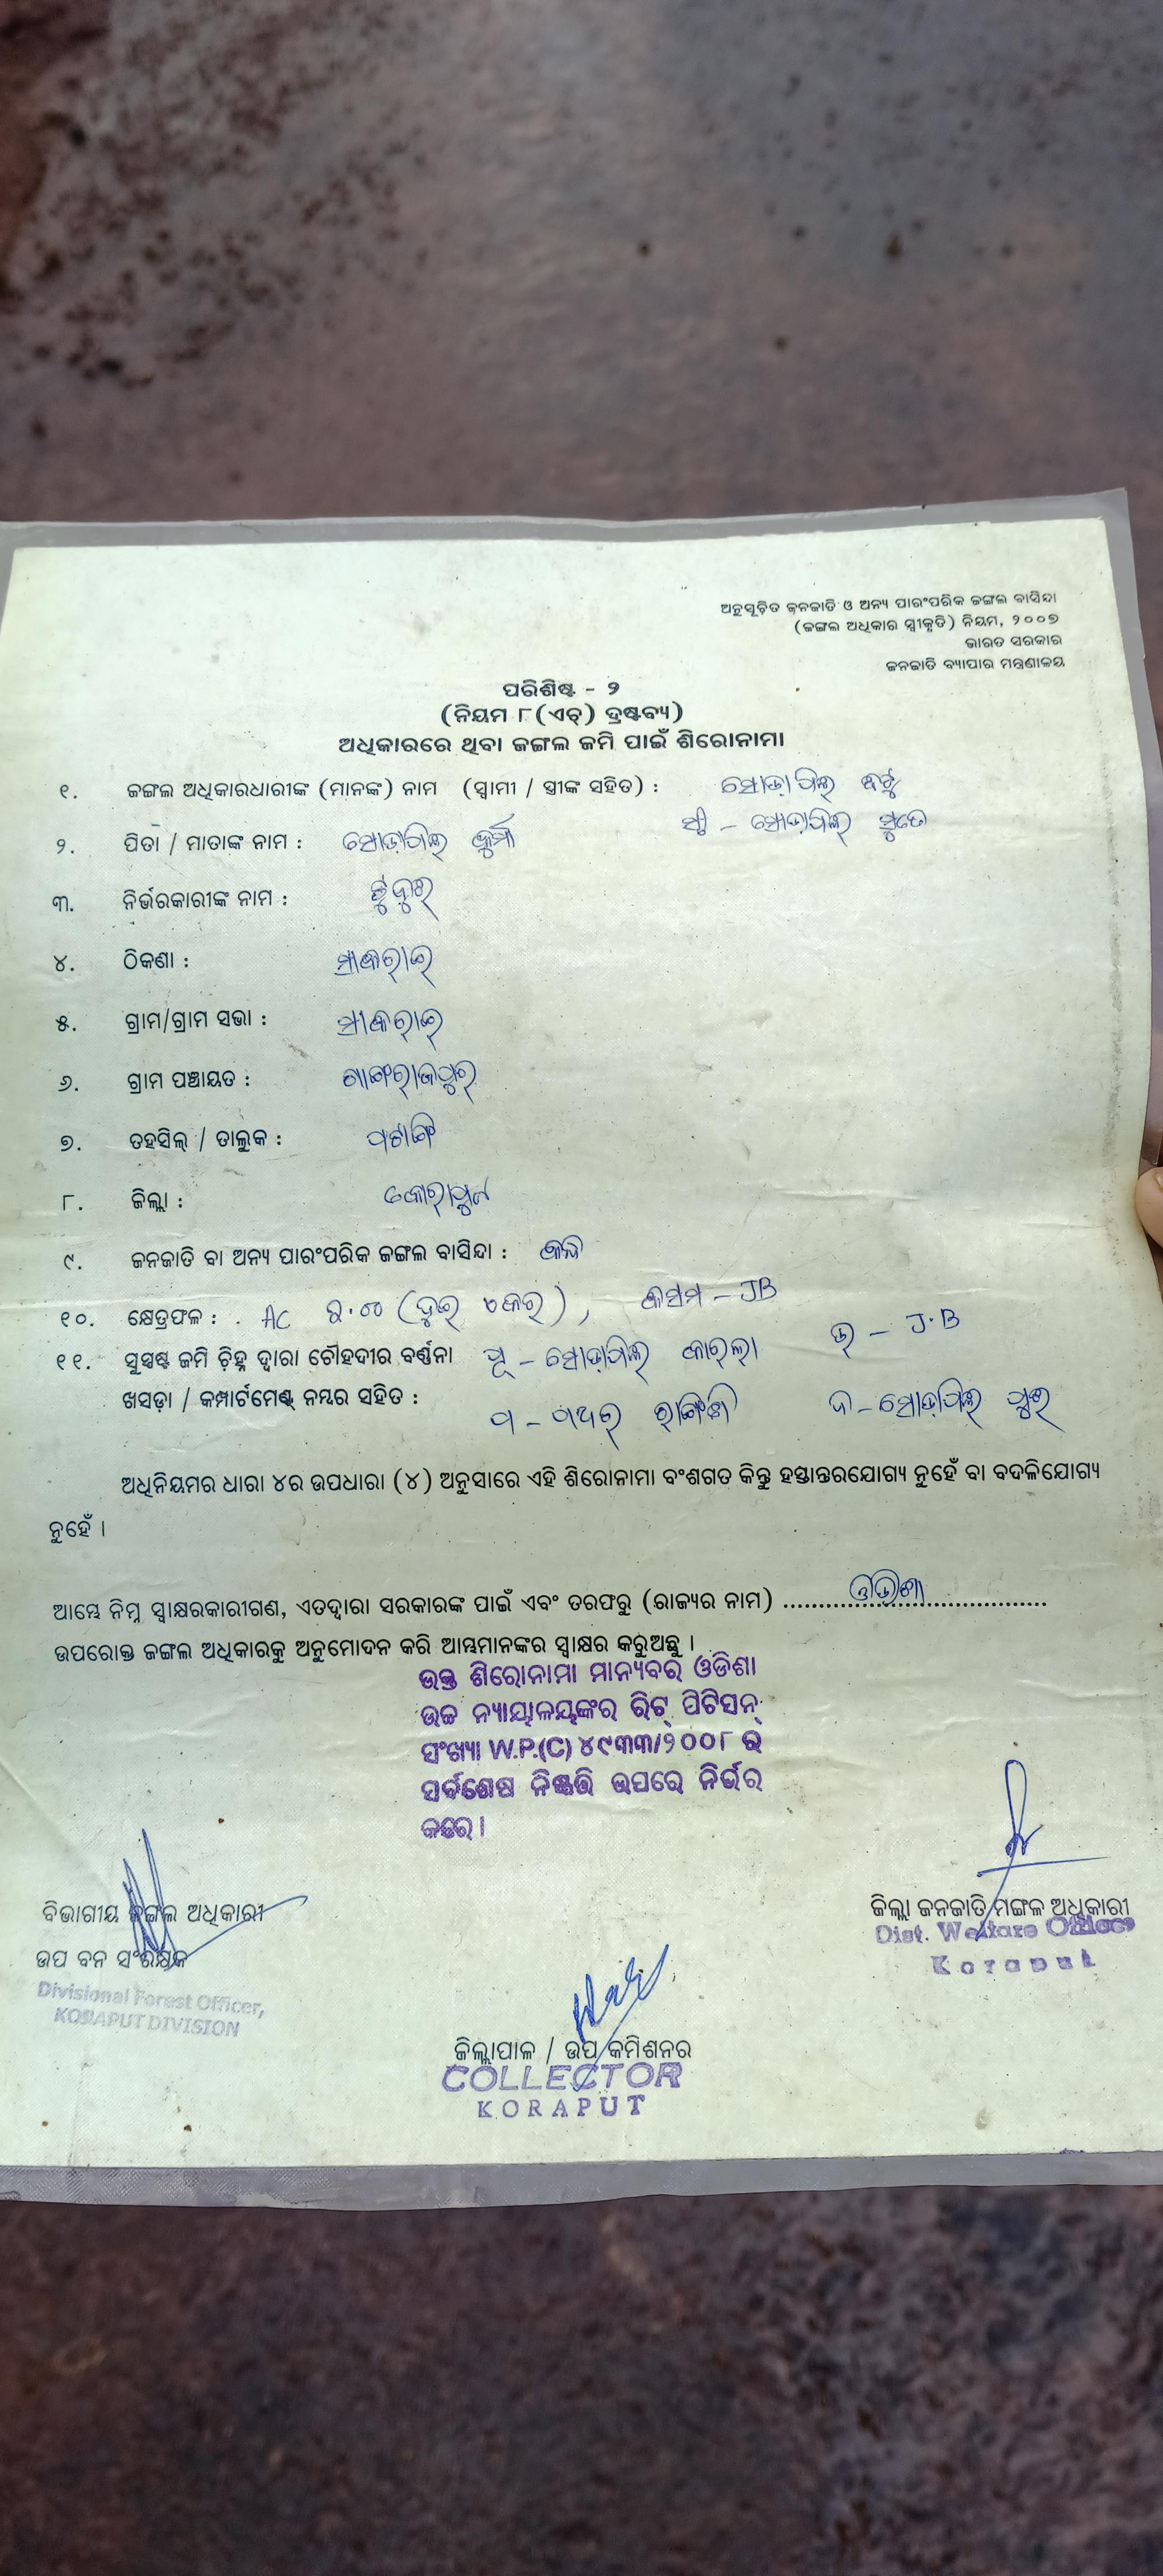 ଅନୁସୂଚିତ ଜନଜାତି ଓ ଅନ୍ୟ ପାରଂପରିକ ଜଙ୍ଗଲ ବାସିନ୍ଦା
(ଜଙ୍ଗଲ ଅଧିକାର ସ୍ୱୀକୃତି) ନିୟମ, ୨୦୦୭
ଭାରତ ସରକାର
ଜନଜାତି ବ୍ୟାପାର ମନ୍ତ୍ରଣାଳୟ
ପରିଶିଷ୍ଟ - ୨
(ନିୟମ ୮(ଏଚ୍) ଦ୍ରଷ୍ଟବ୍ୟ)
ଅଧିକାରରେ ଥିବା ଜଙ୍ଗଲ ଜମି ପାଇଁ ଶିରୋନାମା
୧. ଜଙ୍ଗଲ ଅଧିକାରଧାରୀଙ୍କ (ମାନଙ୍କ) ନାମ (ସ୍ୱାମୀ / ସ୍ତ୍ରୀଙ୍କ ସହିତ) :
୨. ପିତା / ମାତାଙ୍କ ନାମ :
୩. ନିର୍ଭରକାରୀଙ୍କ ନାମ :
୪. ଠିକଣା :
୫. ଗ୍ରାମ/ଗ୍ରାମ ସଭା :
୬. ଗ୍ରାମ ପଞ୍ଚାୟତ :
୭. ତହସିଲ୍ / ତାଲୁକ : ପଟାଙ୍ଗି
୮. ଜିଲ୍ଲା : କୋରାପୁଟ
୯. ଜନଜାତି ବା ଅନ୍ୟ ପାରଂପରିକ ଜଙ୍ଗଲ ବାସିନ୍ଦା :
୧୦. କ୍ଷେତ୍ରଫଳ : AC ୨.୦୦ (ଦୁଇ ଏକର), କିସମ - JB
୧୧. ସୁସ୍ପଷ୍ଟ ଜମି ଚିହ୍ନ ଦ୍ୱାରା ଚୌହଦୀର ବର୍ଣ୍ଣନା ପୂ - ଉ - J.B
ଖସଡ଼ା / କମ୍ପାର୍ଟମେଣ୍ଟ୍ ନମ୍ବର ସହିତ : ପ - ଦ -
ଅଧିନିୟମର ଧାରା ୪ର ଉପଧାରା (୪) ଅନୁସାରେ ଏହି ଶିରୋନାମା ବଂଶଗତ କିନ୍ତୁ ହସ୍ତାନ୍ତରଯୋଗ୍ୟ ନୁହେଁ ବା ବଦଳିଯୋଗ୍ୟ
ନୁହେଁ ।
ଆମ୍ଭେ ନିମ୍ନ ସ୍ୱାକ୍ଷରକାରୀଗଣ, ଏତଦ୍ୱାରା ସରକାରଙ୍କ ପାଇଁ ଏବଂ ତରଫରୁ (ରାଜ୍ୟର ନାମ) ଓଡିଶା
ଉପରୋକ୍ତ ଜଙ୍ଗଲ ଅଧିକାରକୁ ଅନୁମୋଦନ କରି ଆମ୍ଭମାନଙ୍କର ସ୍ୱାକ୍ଷର କରୁଅଛୁ ।
ଉକ୍ତ ଶିରୋନାମା ମାନ୍ୟବର ଓଡିଶା
ଉଚ୍ଚ ନ୍ୟାୟାଳୟଙ୍କର ରିଟ୍ ପିଟିସନ୍
ସଂଖ୍ୟା W.P.(C) ୪୯୩୩/୨୦୦୮ ର
ସର୍ବଶେଷ ନିଷ୍ପତ୍ତି ଉପରେ ନିର୍ଭର
କରେ ।
ବିଭାଗୀୟ ଜଙ୍ଗଲ ଅଧିକାରୀ
ଉପ ବନ ସଂରକ୍ଷକ
Divisional Forest Officer,
KORAPUT DIVISION
ଜିଲ୍ଲା ଜନଜାତି ମଙ୍ଗଳ ଅଧିକାରୀ
Dist. Welfare Officer
Koraput
ଜିଲ୍ଲାପାଳ / ଉପ କମିଶନର
COLLECTOR
KORAPUT